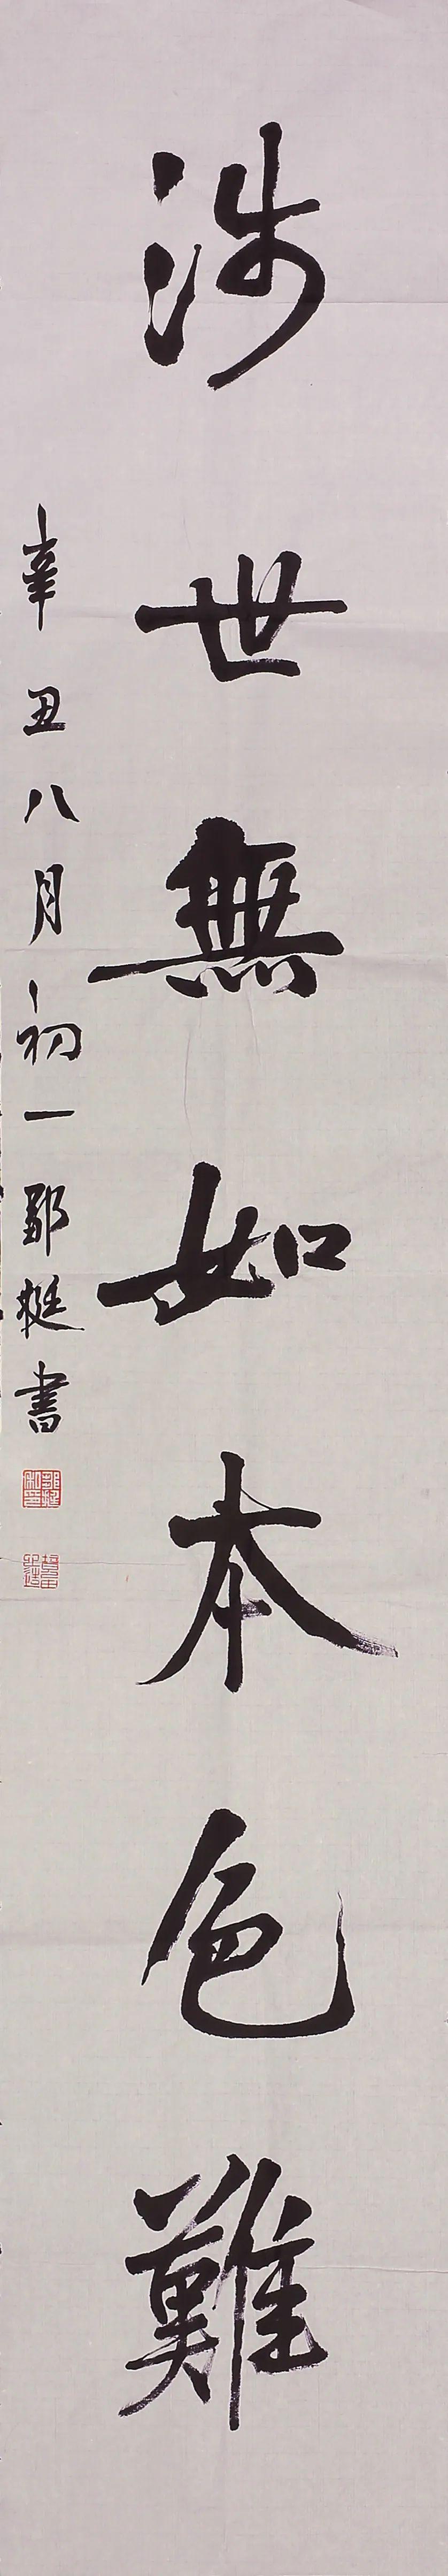 涉世無如本色難
辛丑八月初一鄒挺書